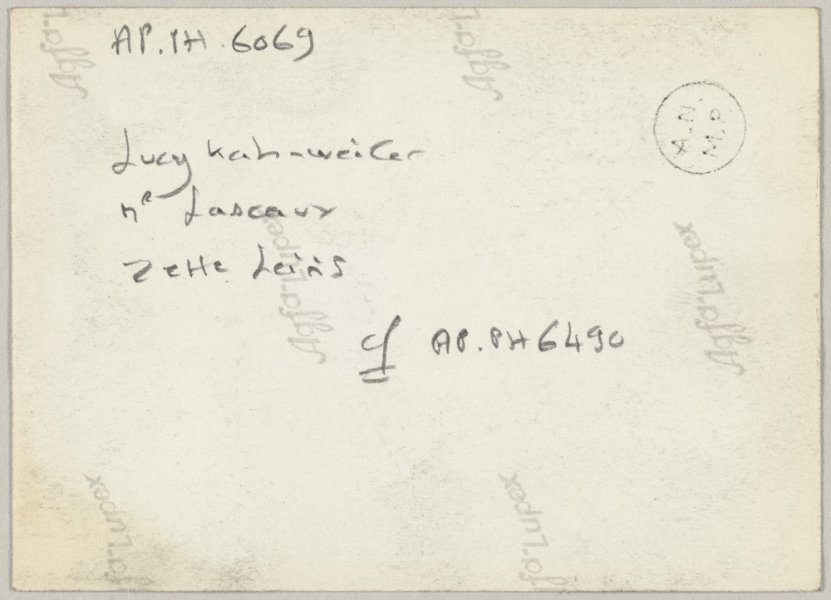 AP.PH.6069
A.N.
M.P.
Lucy Kahnweiler
Me Lascaux
Zette Leiris
cf AP.PH 6490
Agfa-Lupex
Agfa-Lupex
Agfa-Lupex
Agfa-Lupex